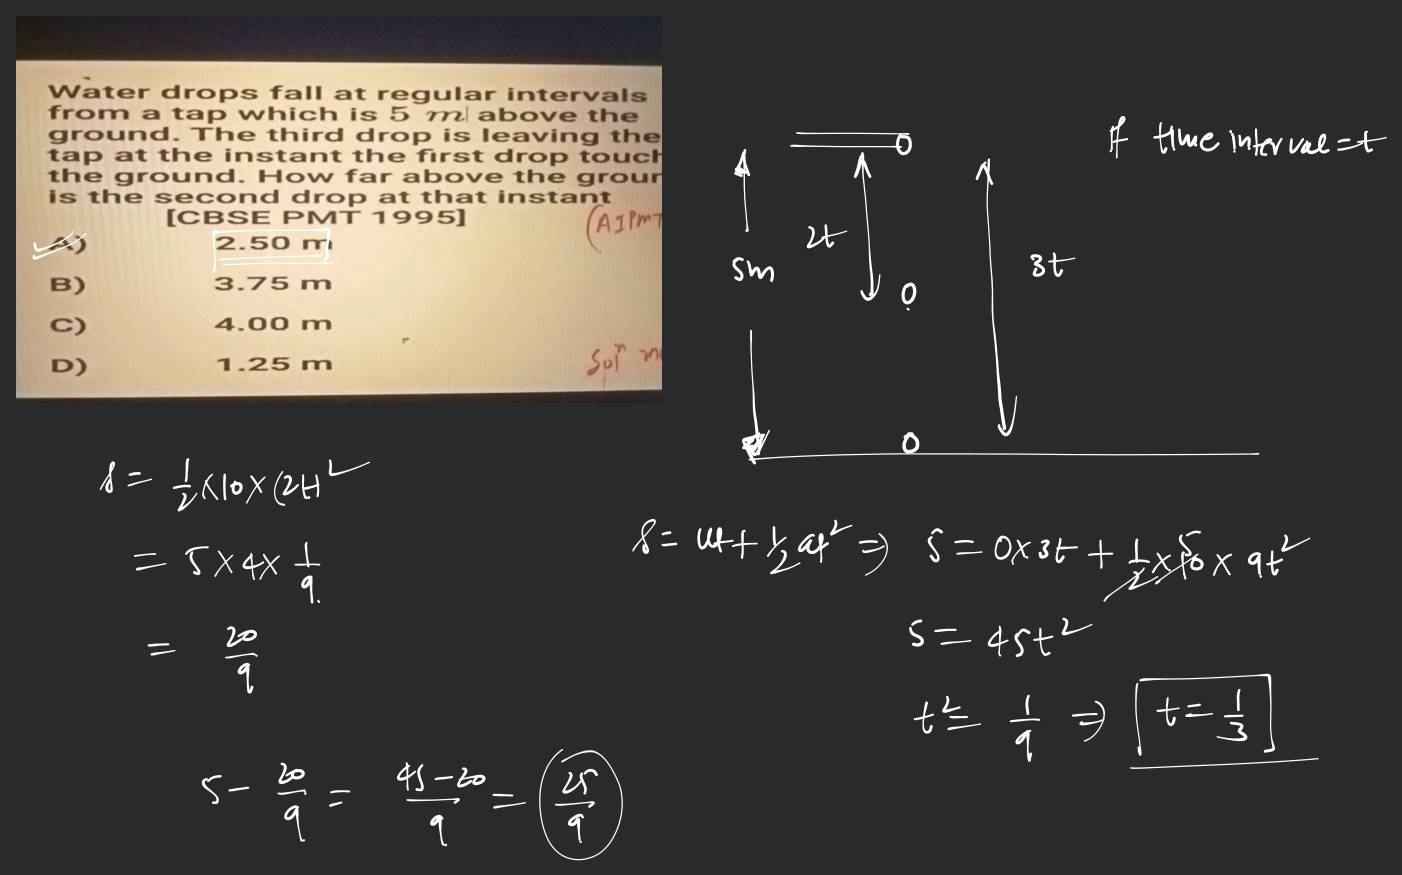 Water drops fall at regular intervals
from a tap which is 5 m above the
ground. The third drop is leaving the
tap at the instant the first drop touch
the ground. How far above the groun
is the second drop at that instant
[CBSE PMT 1995]
(AIPMT
A) 2.50 m
B) 3.75 m
C) 4.00 m
D) 1.25 m
Solⁿ
If time interval = t
5m
2t
3t
s = 1/2 × 10 × (2t)²
= 5 × 4 × 1/9
= 20/9
5 - 20/9 = 45-20/9 = 25/9
s = ut + 1/2 at² ⇒ 5 = 0×3t + 1/2 × 10 5 × 9t²
5 = 45t²
t² = 1/9 ⇒ t = 1/3